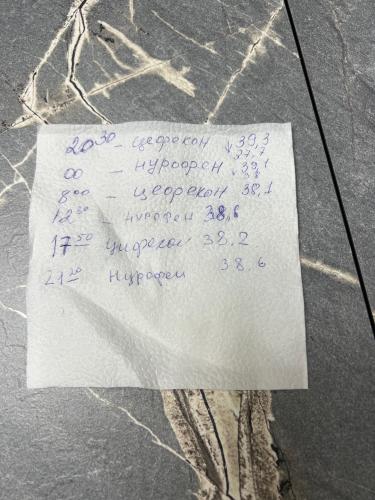 20³⁰ – цефекон ↓ 39,3
37,7
00 – нурофен 39,1
8⁰⁰ – цефекон 38,1
12³⁰ – нурофен 38,6
17⁵⁰ цифекон 38.2
21²⁰ Нурофен 38.6